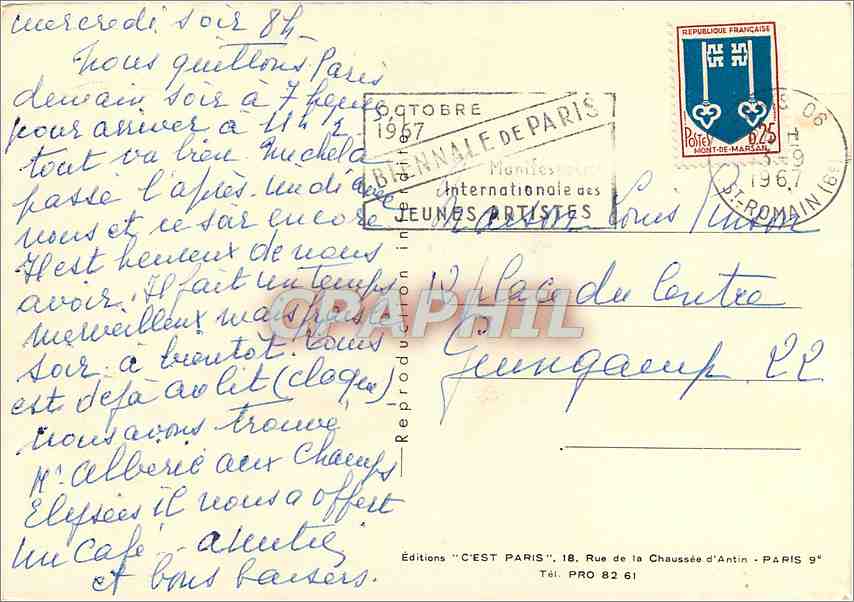 mercredi soir 8h
Nous quittons Paris
demain soir à 7 heures
pour arriver à 11h 2
tout va bien. Michel a
passé l'après-midi avec
nous et ce soir encore
Il est heureux de nous
avoir. Il fait un temps
merveilleux mais frais ce
soir. à bientôt. Louis
est déjà au lit (claqué)
nous avons trouvé
Mr Alberic aux Champs
Elysées il nous a offert
un café. amitiés
et bons baisers.
OCTOBRE
1967
BIENNALE DE PARIS
Manifestation
Internationale des
JEUNES ARTISTES
REPUBLIQUE FRANÇAISE
POSTES 0,25
MONT-DE-MARSAN
PARIS 06
1967
ST-ROMAIN (6e)
Maison Louis
13 place du Centre
Guingamp. 22
Reproduction interdite
CPAPHIL
Éditions "C'EST PARIS", 18, Rue de la Chaussée d'Antin - PARIS 9e
Tél. PRO 82 61